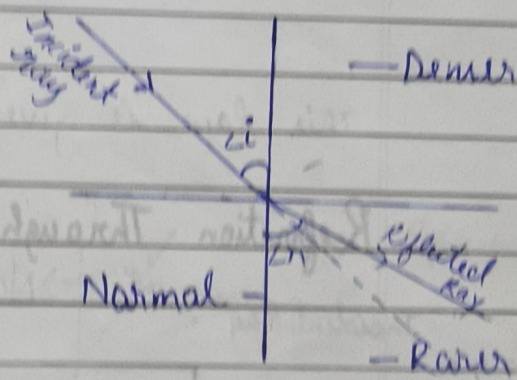 Incident
Ray
Denser
∠i
∠r
Reflected
Ray
Normal
Rarer